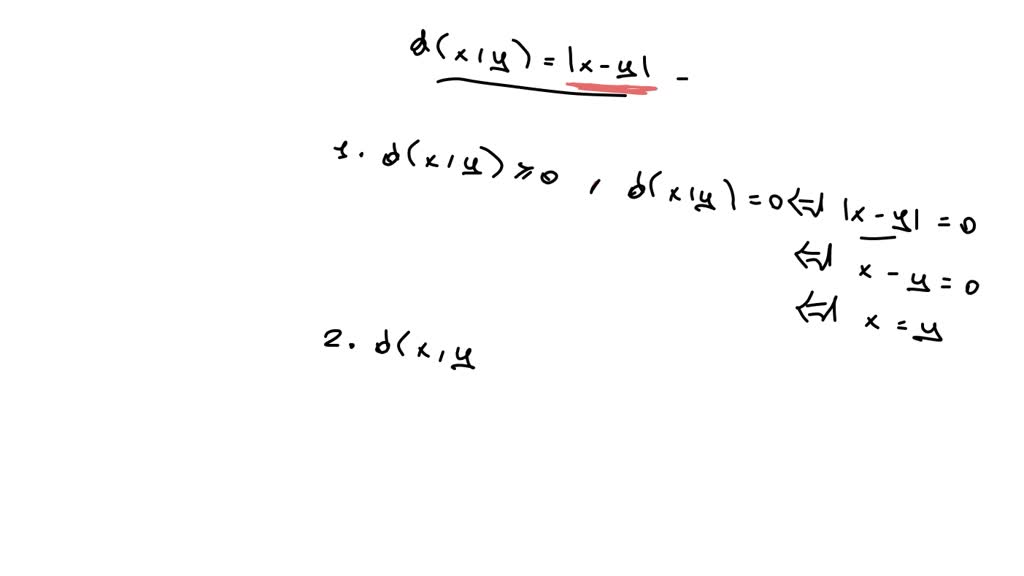 d(x,y) = |x-y| -
1. d(x,y) ≥ 0 , d(x,y) = 0 ⇔ |x-y| = 0
⇔ x - y = 0
⇔ x = y
2. d(x,y